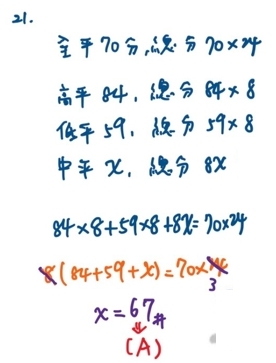 21.
全平70分,總分70×24
高平84,總分84×8
低平59,總分59×8
中平x,總分8x
84×8+59×8+8x=70×24
8(84+59+x)=70×24
3
x=67#
(A)